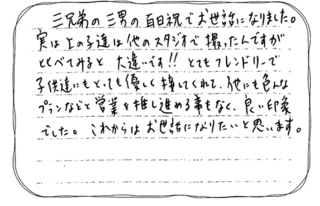 三兄弟の三男の百日祝でお世話になりました。
実は上の子達は他のスタジオで撮ったんですが
とくべてみると大違いです!! とてもフレンドリーで
子供達にもとっても優しく接してくれて、他にも色んな
プランなどと営業を推し進める事もなく、良い印象
でした。これからはお世話になりたいと思います。